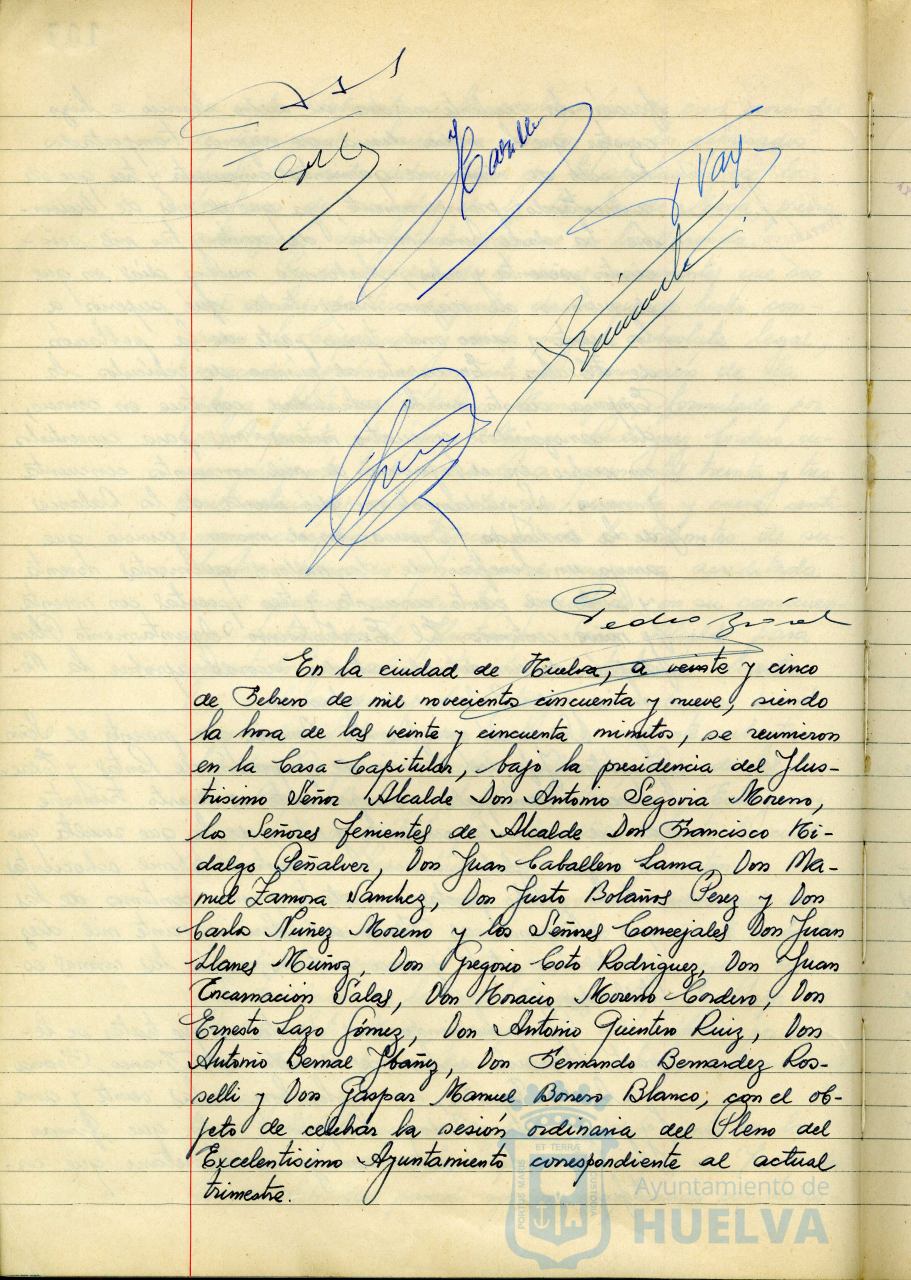 Pedro
En la ciudad de Huelva, a veinte y cinco
de Febrero de mil novecientos cincuenta y nueve, siendo
la hora de las veinte y cincuenta minutos, se reunieron
en la Casa Capitular, bajo la presidencia del Ilus-
trisimo Señor Alcalde Don Antonio Segovia Moreno,
los Señores Tenientes de Alcalde Don Francisco Hi-
dalgo Peñalver, Don Juan Caballero Lama, Don Ma-
nuel Zamora Sánchez, Don Justo Bolaños Perez y Don
Carlos Núñez Moreno y los Señores Concejales Don Juan
Llanes Muñoz, Don Gregorio Coto Rodriguez, Don Juan
Encarnación Salas, Don Horacio Moreno Cordero, Don
Ernesto Lazo Gómez, Don Antonio Quintero Ruiz, Don
Antonio Bernal Ybáñez, Don Fernando Bernardez Ros-
selli y Don Gaspar Manuel Borrero Blanco, con el ob-
jeto de celebrar la sesión ordinaria del Pleno del
Excelentisimo Ayuntamiento correspondiente al actual
trimestre.
Ayuntamiento de
HUELVA